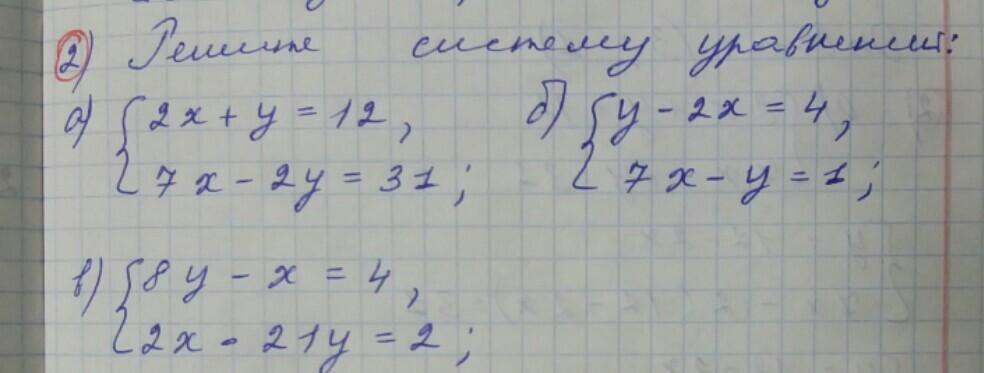 2) Решите систему уравнений:
а) { 2x + y = 12, б) { y - 2x = 4,
7x - 2y = 31; 7x - y = 1;
в) { 8y - x = 4,
2x - 21y = 2;